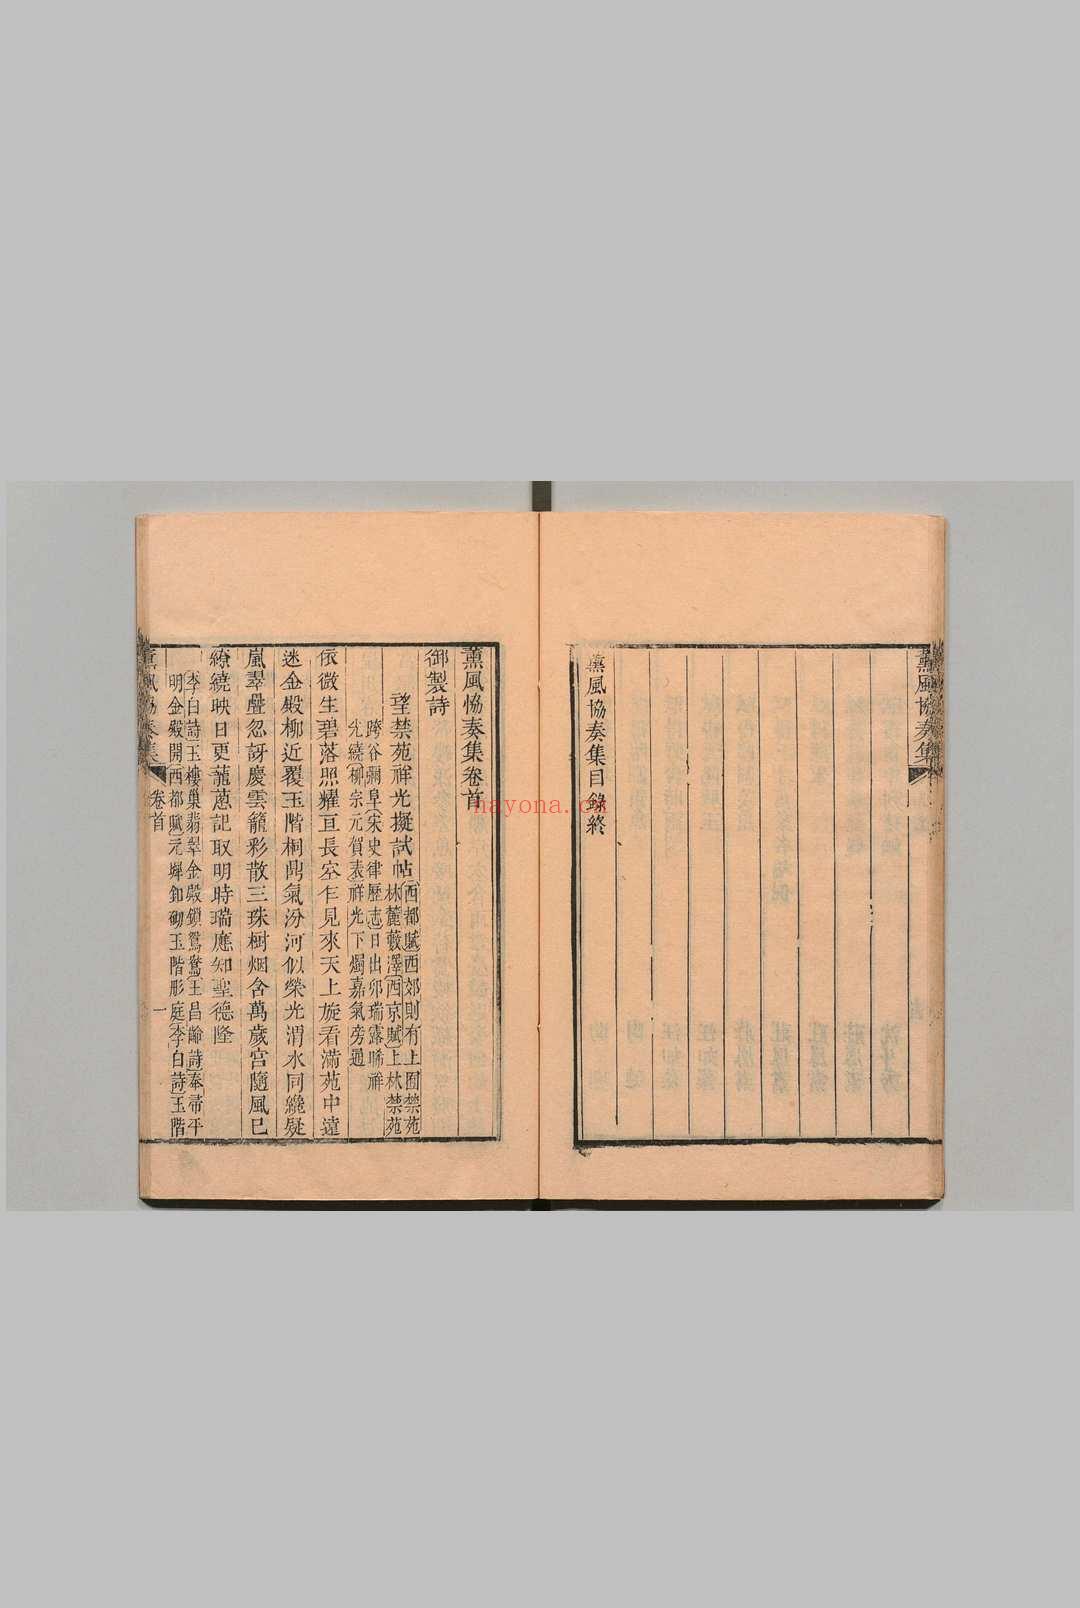 薰風協奏集
薰風協奏集目錄終
薰風協奏集卷首
御製詩
望禁苑祥光擬試帖
西都賦西郊則有上囿禁苑
林麓藪澤西京賦上林禁苑
跨谷彌阜宋史律歷志日出卯瑞露晞祥
光繞柳宗元賀表祥光下燭嘉氣旁通
依微生碧落照耀亘長空乍見來天上旋看滿苑中遠
迷金殿柳近覆玉階桐鼎氣汾河似榮光渭水同纔疑
嵐翠疊忽訝慶雲籠彩散三珠樹烟含萬歲宮隨風已
繚繞映日更蘢蔥記取明時瑞應知聖德隆
李白詩玉樓巢翡翠金殿鎖鴛鴦王昌齡詩奉帚平
明金殿開西都賦元墀釦砌玉階彤庭李白詩玉階
薰風協奏集
卷首
一
hayona.cn